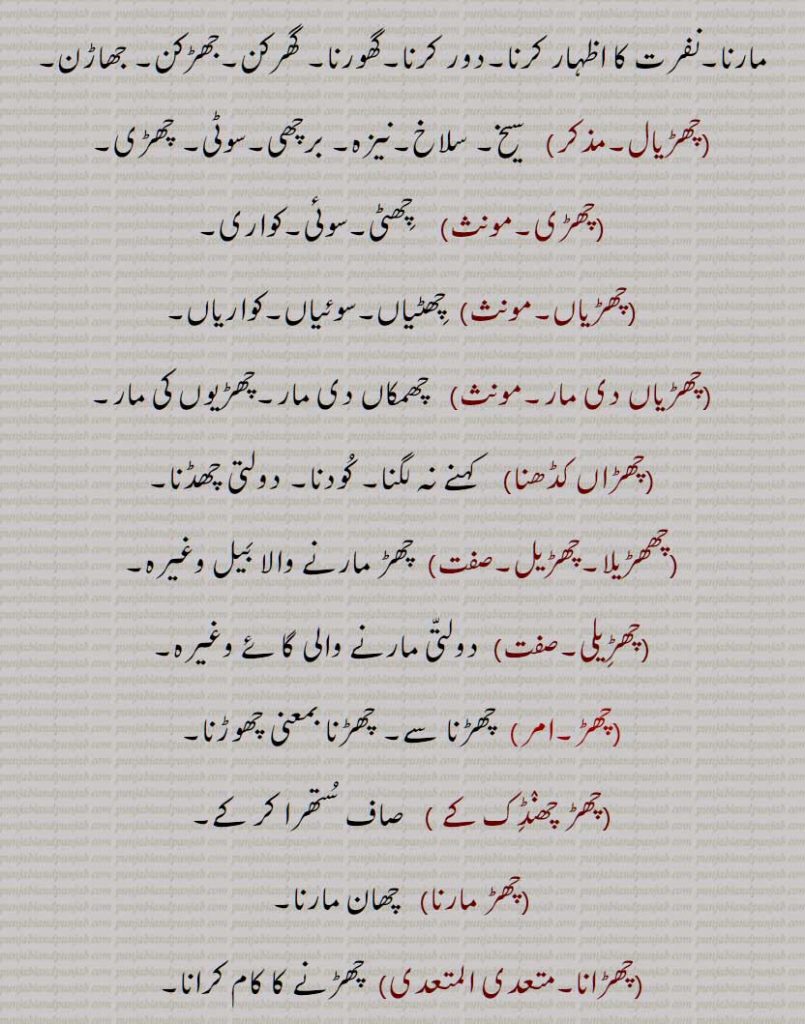 مارنا۔نفرت کا اظہار کرنا۔دور کرنا۔گھورنا۔ گھرکن۔جھڑکن۔ جھاڑن۔
(چھڑیال۔مذکر) سیخ۔ سلاخ۔نیزہ۔ برچھی۔سوٹی۔ چھڑی۔
(چھڑی۔مونث) چِھٹی۔سوئی۔کواری۔
(چھڑیاں۔مونث) چِھٹیاں۔سوئیاں۔کواریاں۔
(چھڑیاں دی مار۔مونث) چھمکاں دی مار۔چھڑیوں کی مار۔
(چھڑاں کڈھنا) کہنے نہ لگنا۔ کُودنا۔ دولتی چھڈنا۔
(چھھڑیلا۔چھڑیل۔صفت) چھڑ مارنے والا بَیل وغیرہ۔
(چھڑِیلی۔صفت) دولتّی مارنے والی گائے وغیرہ۔
(چھڑ۔امر) چھڑنا سے۔ چھڑنا بمعنی چھوڑنا۔
(چھڑ چھنڈِک کے ) صاف سُتھرا کر کے۔
(چھڑ مارنا) چھان مارنا۔
(چھڑانا۔متعدی المتعدی) چھڑنے کا کام کرانا۔
punjabiandpunjab.com